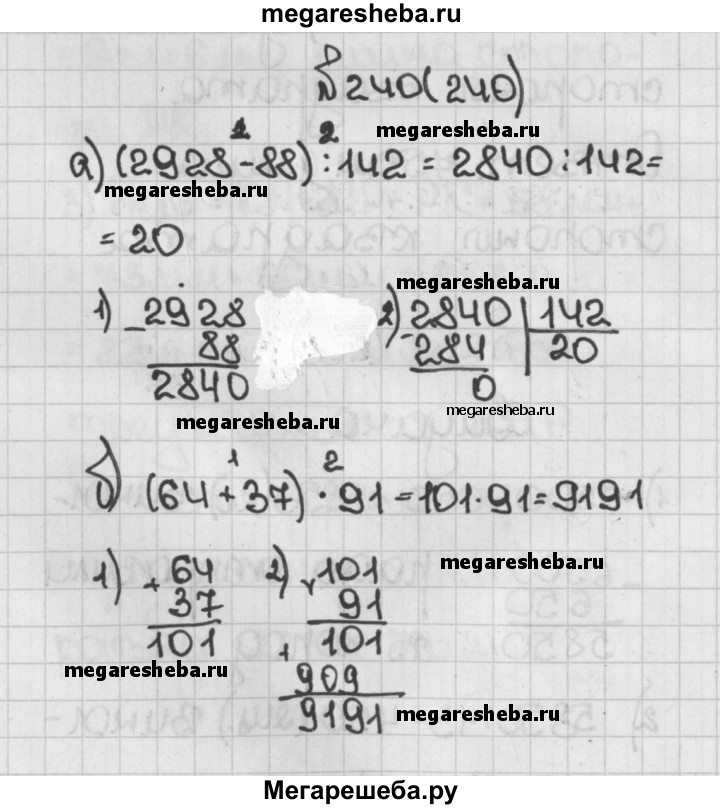 megaresheba.ru
№240(240)
1 2
megaresheba.ru
а) (2928-88):142 = 2840:142=
megaresheba.ru
= 20
megaresheba.ru
1) - 2928
88
2840
2) - 2840 | 142
284 20
0
megaresheba.ru
megaresheba.ru
1 2
б) (64+37)·91=101·91=9191
megaresheba.ru
1) + 64
37
101
2) × 101
91
+ 101
909
9191
megaresheba.ru
megaresheba.ru
Мегарешеба.ру